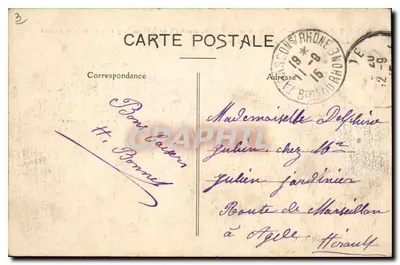 3)
CARTE POSTALE
Correspondance
Adresse
TARASCON S RHONE
19 *
11-9
15
BCHES DU RHONE
20
12-9
15
Bons baisers
H. Bonnet
CPAPHIL
Mademoiselle Delphine
Julien chez Mr
Julien jardinier
Route de Marseillan
à Agde
Hérault